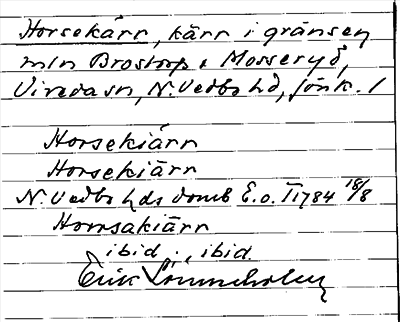 Horsekärr, kärr i gränsen
mln Brostorp & Mosseryd,
Vireda sn, N. Vedbo hd, Jönk. l
Horsekiärr
Horsekiärr
N. Vedbo hds domb E.o. II 1784 18/8
Horrsakiärr
ibid., ibid.
Erik